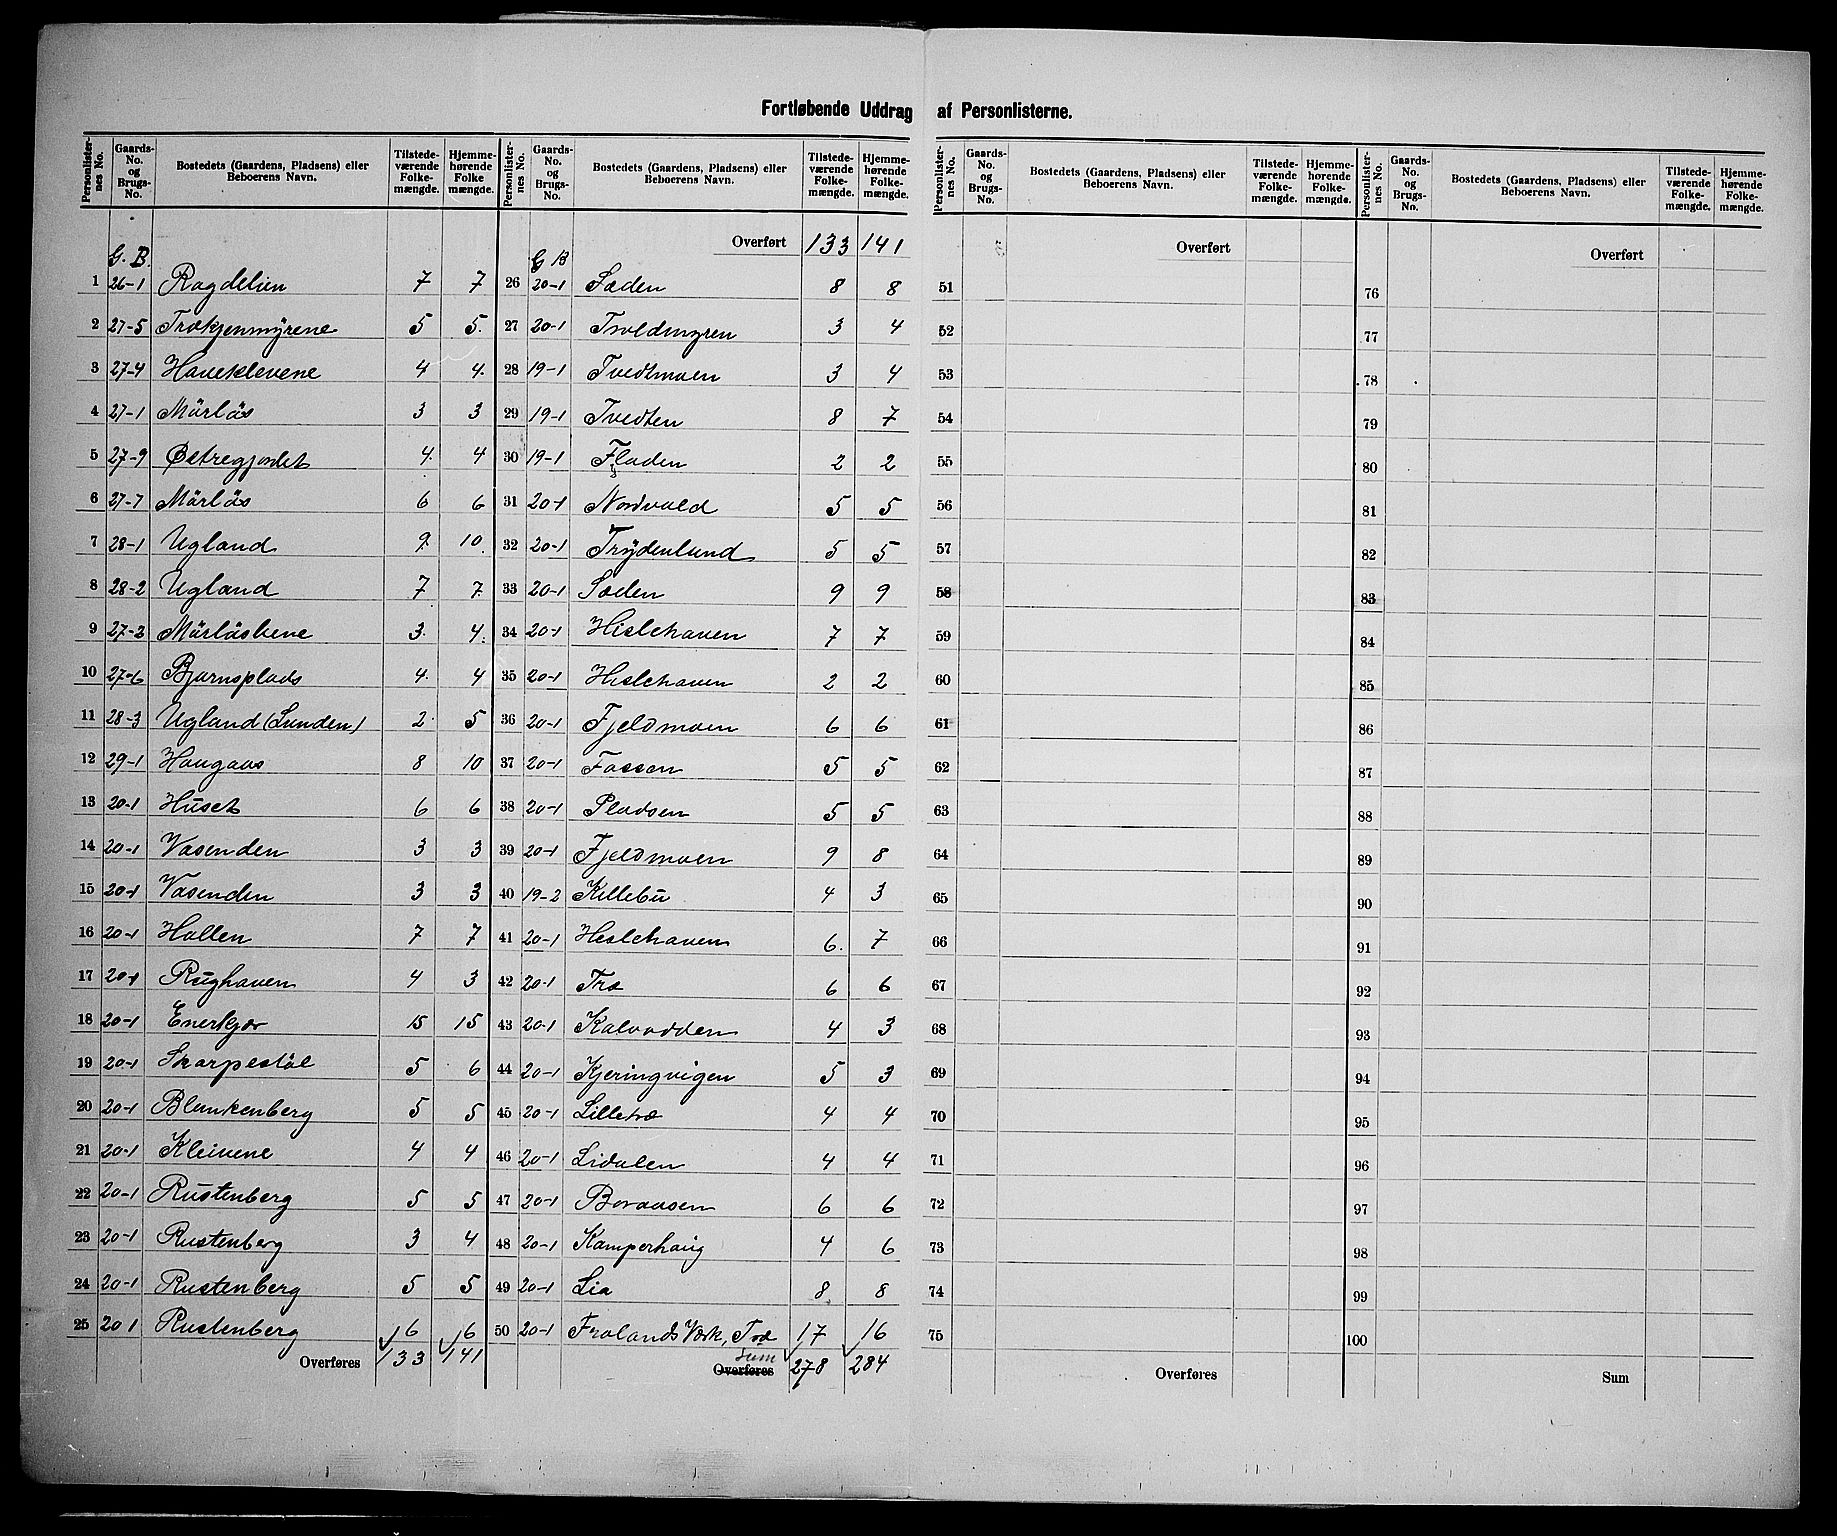 Fortløbende Uddrag af Personlisterne.
Personlister-nes No. | Gaards-No. og Brugs-No. | Bostedets (Gaardens, Pladsens) eller Beboerens Navn. | Tilstede-værende Folke-mængde. | Hjemme-hørende Folke mængde.
G. B.
1 26-1 Ragdelien 7 7
2 27-5 Trækjenmyrene 5 5.
3 27-4 Haveklevene 4 4.
4 27-1 Mörlös 3 3
5 27-9 Østregjordet 4. 4
6 27-7 Mörlös 6 6
7 28-1 Ugland 9. 10.
8 28-2 Ugland 7 7.
9 27-2 Mörlösbene 3. 4.
10 27-6 Bjornsplads 4. 4
11 28-3 Ugland (Lunden) 2. 5
12 29-1 Haugaas 8 10
13 20-1 Huset 6 6
14 20-1 Vasenden 3 3
15 20-1 Vasenden 3 3
16 20-1 Hallen 7 7
17 20-1 Rughaven 4 3
18 20-1 Enerkjær 15 15
19 20-1 Skarpestöl 5 6
20 20-1 Blankenberg 5 5
21 20-1 Kleivene 4 4
22 20-1 Rustenberg 5 5
23 20-1 Rustenberg 3 4
24 20-1 Rustenberg 5 5
25 20 1 Rustenberg 6 6
Overføres 133 141
Personlister-nes No. | Gaards-No. og Brugs-No. | Bostedets (Gaardens, Pladsens) eller Beboerens Navn. | Tilstede-værende Folke-mængde. | Hjemme-hørende Folke-mængde.
Overført 133 141
G B
26 20-1 Sæden 8 8
27 20-1 Tveldmyren 3 4
28 19-1 Tvedtmoen 3 4
29 19-1 Tvedten 8 7
30 19-1 Fladen 2 2
31 20-1 Nordvold 5 5
32 20-1 Frydenlund 5 5
33 20-1 Sæden 9 9
34 20-1 Hislehaven 7 7
35 20-1 Hislehaven 2 2
36 20-1 Fjeldmoen 6 6
37 20-1 Fossen 5 5
38 20-1 Pladsen 5 5
39 20-1 Fjeldmoen 9 8
40 19-2 Killebu 4 3
41 20-1 Heslehaven 6. 7
42 20-1 Træ 6 6
43 20-1 Kalvodden 4 3
44 20-1 Kjeringvigen 5 3
45 20-1 Lilletræ 4 4
46 20-1 Lidalen 4 4
47 20-1 Boraasen 6 6
48 20-1 Kamperhaug 4 6
49 20-1 Lia 8 8
50 20-1 Frolands Værk, Træ 17 16
Sum
Overføres 278 284
Personlister-nes No. | Gaards-No. og Brugs-No. | Bostedets (Gaardens, Pladsens) eller Beboerens Navn. | Tilstede-værende Folke-mængde. | Hjemme-hørende Folke-mængde.
Overført
51
52
53
54
55
56
57
58
59
60
61
62
63
64
65
66
67
68
69
70
71
72
73
74
75
Overføres
Personlister-nes No. | Gaards-No. og Brugs-No. | Bostedets (Gaardens, Pladsens) eller Beboerens Navn. | Tilstede-værende Folke-mængde. | Hjemme-hørende Folke-mængde.
Overført
76
77
78
79
80
81
82
83
84
85
86
87
88
89
90
91
92
93
94
95
96
97
98
99
100
Sum